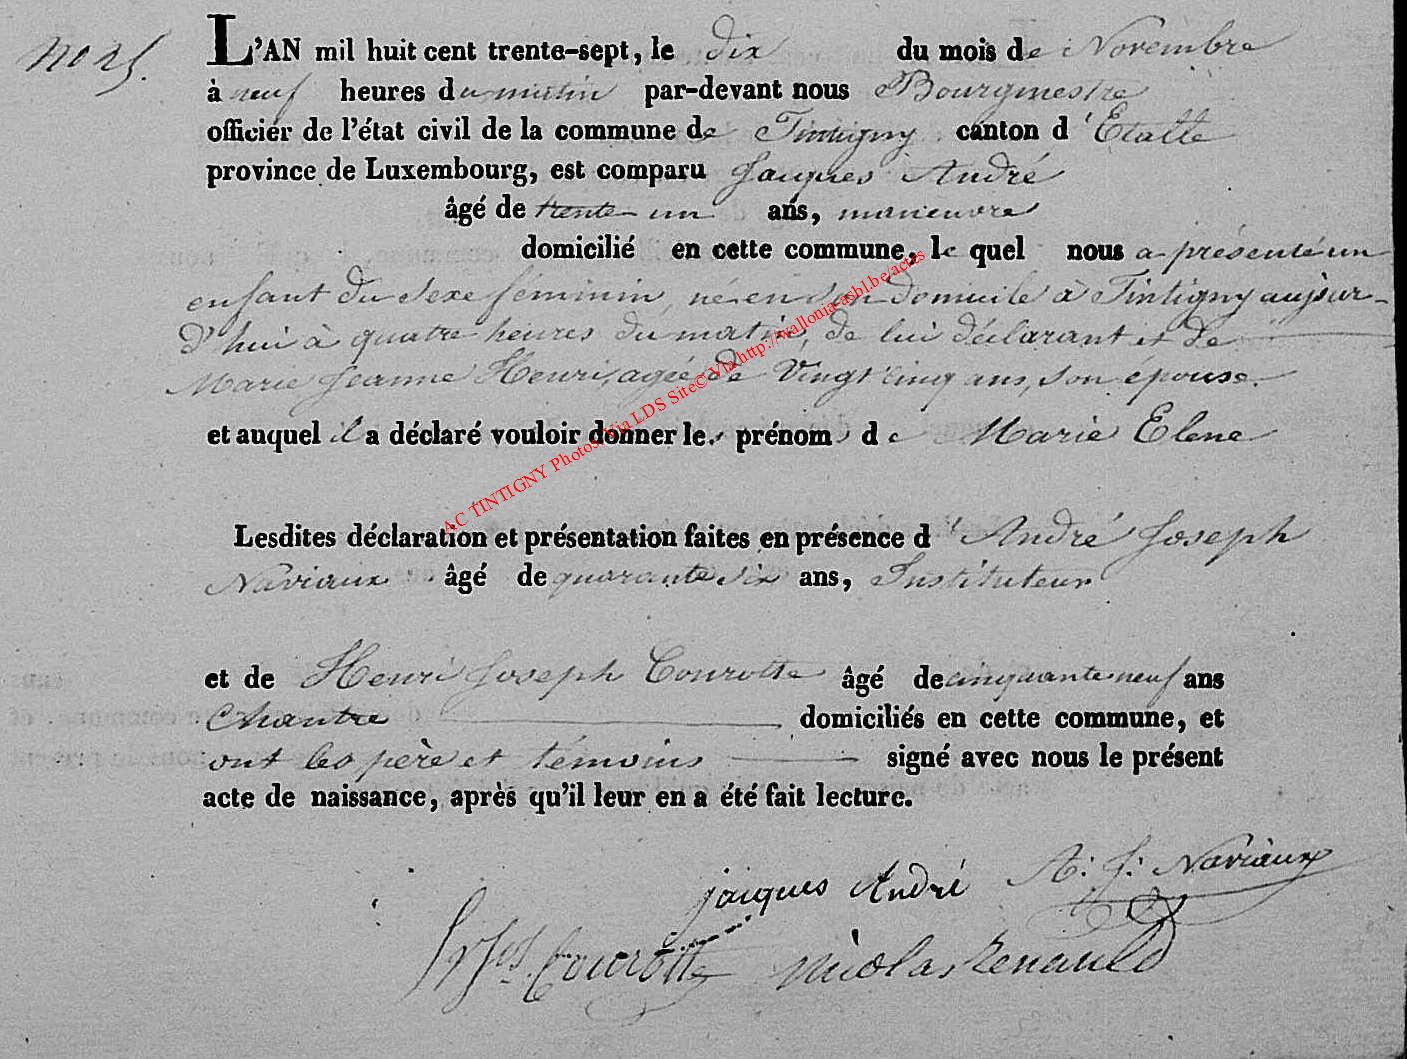 N° 25.
L'AN mil huit cent trente-sept, le dix du mois de Novembre
à neuf heures du matin par-devant nous Bourgmestre
officier de l'état civil de la commune de Tintigny canton d'Etalle
province de Luxembourg, est comparu Jacques André
âgé de trente un ans, manœuvre
domicilié en cette commune, le quel nous a présenté un
enfant du sexe féminin, né en son domicile à Tintigny aujour-
d'hui à quatre heures du matin, de lui déclarant et de
Marie Jeanne Henri, agée de Vingt cinq ans, son epouse.
et auquel il a déclaré vouloir donner les prénoms de Marie Elene
Lesdites déclaration et présentation faites en présence d'André Joseph
Naviaux âgé de quarante six ans, Instituteur
et de Henri Joseph Courotte âgé de cinquante neuf ans
Chantre domiciliés en cette commune, et
ont les père et témoins signé avec nous le présent
acte de naissance, après qu'il leur en a été fait lecture.
jacques André A. J. Naviaux
Courotte Nicolas Renauld
AC TINTIGNY Photos Via LDS Site© Via http://wallonia-asbl.be/actes